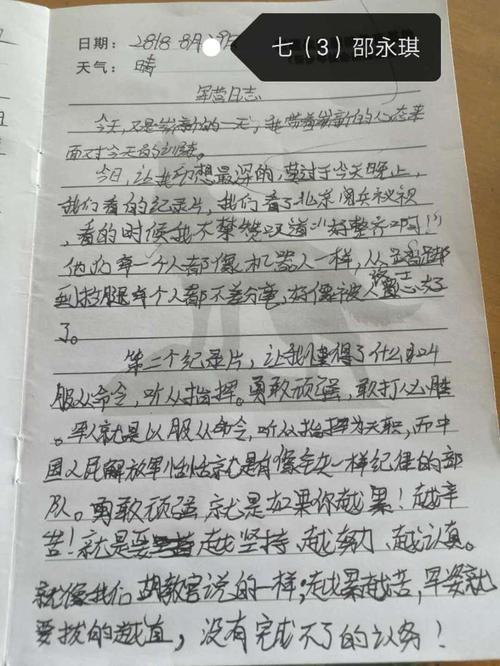 七（3）邵永琪
日期：2018.8月29日
天气：晴
军营日志
今天，又是崭新的一天，我带着崭新的心态来
面对今天的训练。
今日，让我印想最深的，莫过于今天晚上，
我们看的纪录片，我们看了北京阅兵秘初
，看的时候我不禁赞叹道："好整齐啊！"
他们每一个人都像机器人一样，从踏脚
到抬腿每个人都不差分毫，好像被人
了。
第二个纪录片，让我懂得了什么叫
服从命令，听从指挥。勇敢顽强，敢打必胜
。军人就是以服从命令，听从指挥为天职，而中
国人民解放军恰恰就是有像一样纪律的部
队。勇敢顽强，就是如果你越累！越辛
苦！就是要越坚持、越努力、越认真。
就像我们胡教官说的一样；越累越苦，军姿就
要拔的越直，没有完成不了的任务！